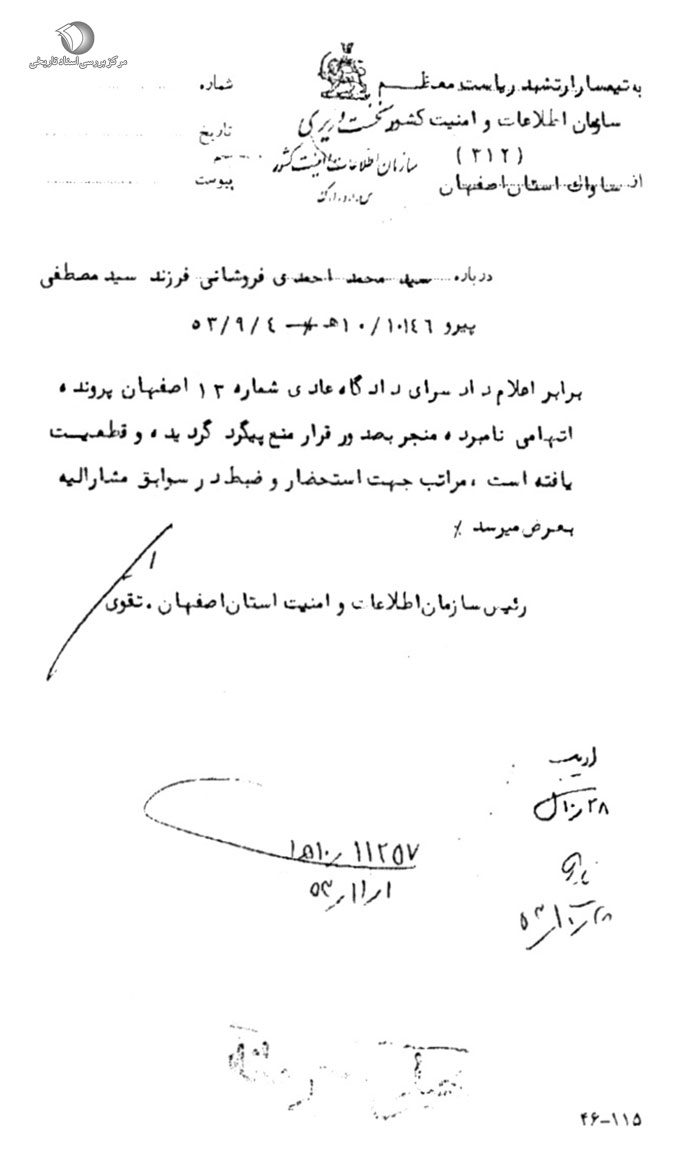 مرکز بررسی اسناد تاریخی
به تیمسار ارتشبد ریاست معظم
سازمان اطلاعات و امنیت کشور
(۳۱۲)
از ساواک استان اصفهان
نخست وزیری
سازمان اطلاعات و امنیت کشور
س.ا.و.ا.ک
شماره
تاریخ
پیوست
درباره سید محمد احمدی فروشانی فرزند سید مصطفی
پیرو ۱۰/۱۰۱۴۶ هـ ۵۳/۹/۴
برابر اعلام داد سرای دادگاه عادی شماره ۱۳ اصفهان پرونده
اتهامی نامبرده منجر بصدور قرار منع پیگرد گردیده و قطعیت
یافته است ، مراتب جهت استحضار و ضبط در سوابق مشارالیه
بعرض میرسد ٪
رئیس سازمان اطلاعات و امنیت استان اصفهان . تقوی
۱۱۲۵۷ /۱۰هـ۱
۵۳/۱۱/۱
۲۸/۱۰
۵۳/۱۰/۲۸
۴۶-۱۱۵